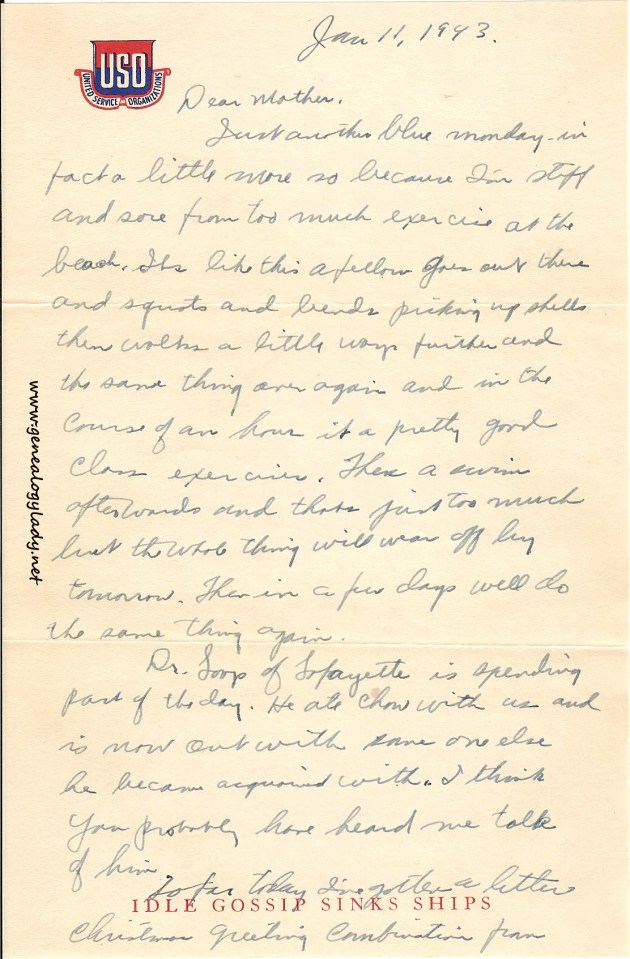 Jan 11, 1943.
USO
UNITED SERVICE ORGANIZATIONS
Dear Mother.
Just another blue monday - in
fact a little more so because I'm stiff
and sore from too much exercise at the
beach. Its like this a fellow goes out there
and squats and bends picking up shells
then walks a little ways further and
the same thing over again and in the
course of an hour it a pretty good
class exercise. Then a swim
afterwards and thats just too much
but the whole thing will wear off by
tomorrow. Then in a few days well do
the same thing again.
Dr. Loop of Lafayette is spending
part of the day. He ate chow with us and
is now out with some one else
he became acquainted with. I think
you probably have heard me talk
of him.
So far today I've gotten a letter
IDLE GOSSIP SINKS SHIPS
Christmas greeting combination from
www.genealogylady.net